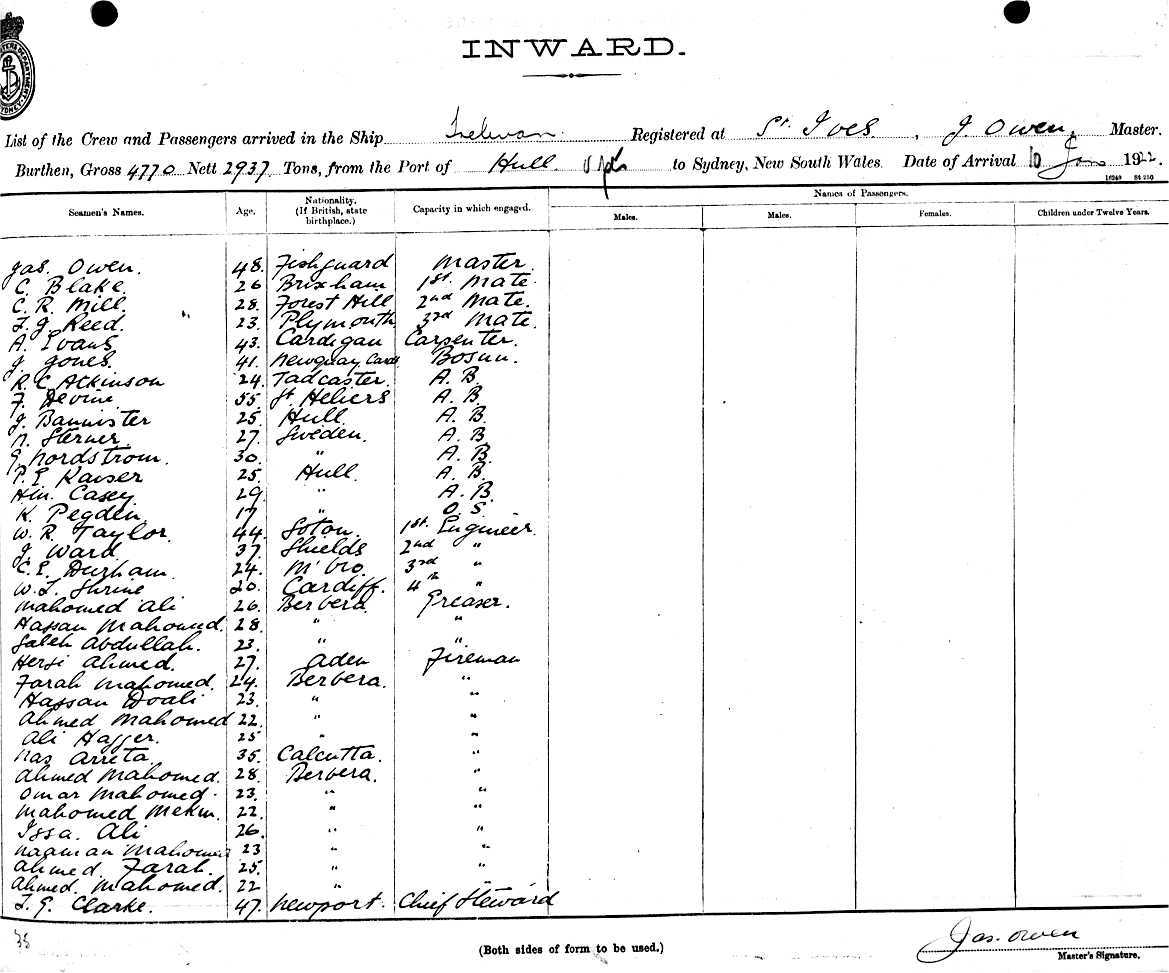 INWARD.
List of the Crew and Passengers arrived in the Ship Trelevan. Registered at St. Ives. , J. Owen, Master.
Burthen, Gross 4770 Nett 2937 Tons, from the Port of Hull to Sydney, New South Wales. Date of Arrival 10 Jan 1922
16249 84-230
Seamen's Names. Age. Nationality. (If British, state birthplace.) Capacity in which engaged. Names of Passengers.
Males. Males. Females. Children under Twelve Years.
Jas. Owen. 48. Fishguard Master
C. Blake. 26 Brixham 1st. Mate
C. R. Mill. 28. Forest Hill 2nd Mate
F. J. Reed. 23. Plymouth 3rd Mate
A. Evans 43. Cardigan Carpenter.
J. Jones. 41. Newquay Cards Bosun.
R. C. Atkinson 24. Tadcaster. A. B.
F. Devine 55 St. Heliers A. B.
J. Bannister 25. Hull. A. B.
N. Sterner. 27. Sweden. A. B.
G. Nordstrom. 30. " A. B.
P. E. Kaiser 25. Hull. A. B.
Hy. Casey. 29. " A. B.
K. Pegden 17 " O. S.
W. R. Taylor. 44. Soton. 1st. Engineer.
J. Ward 37. Shields 2nd "
C. E. Durham. 24. M'bro. 3rd "
W. T. Shrine 20. Cardiff. 4th "
Mahomed Ali 26. Berbera. Greaser.
Hassan Mahomed. 28. " "
Saleh Abdullah. 23. " "
Hersi Ahmed. 27. Aden Fireman
Farah Mahomed. 24. Berbera. "
Hassan Doali 23. " "
Ahmed Mahomed 22. " "
Ali Hagger. 25 " "
Nas Arreta. 35. Calcutta. "
Ahmed Mahomed. 28. Berbera. "
Omar Mahomed. 23. " "
Mahomed Mekin. 22. " "
Issa. Ali 26. " "
Naaman Mahomed 23 " "
Ahmed. Farah. 25. " "
Ahmed. Mahomed. 22 " "
T. G. Clarke. 47. Newport. Chief Steward
35
Jas. Owen
(Both sides of form to be used.)
Master's Signature.